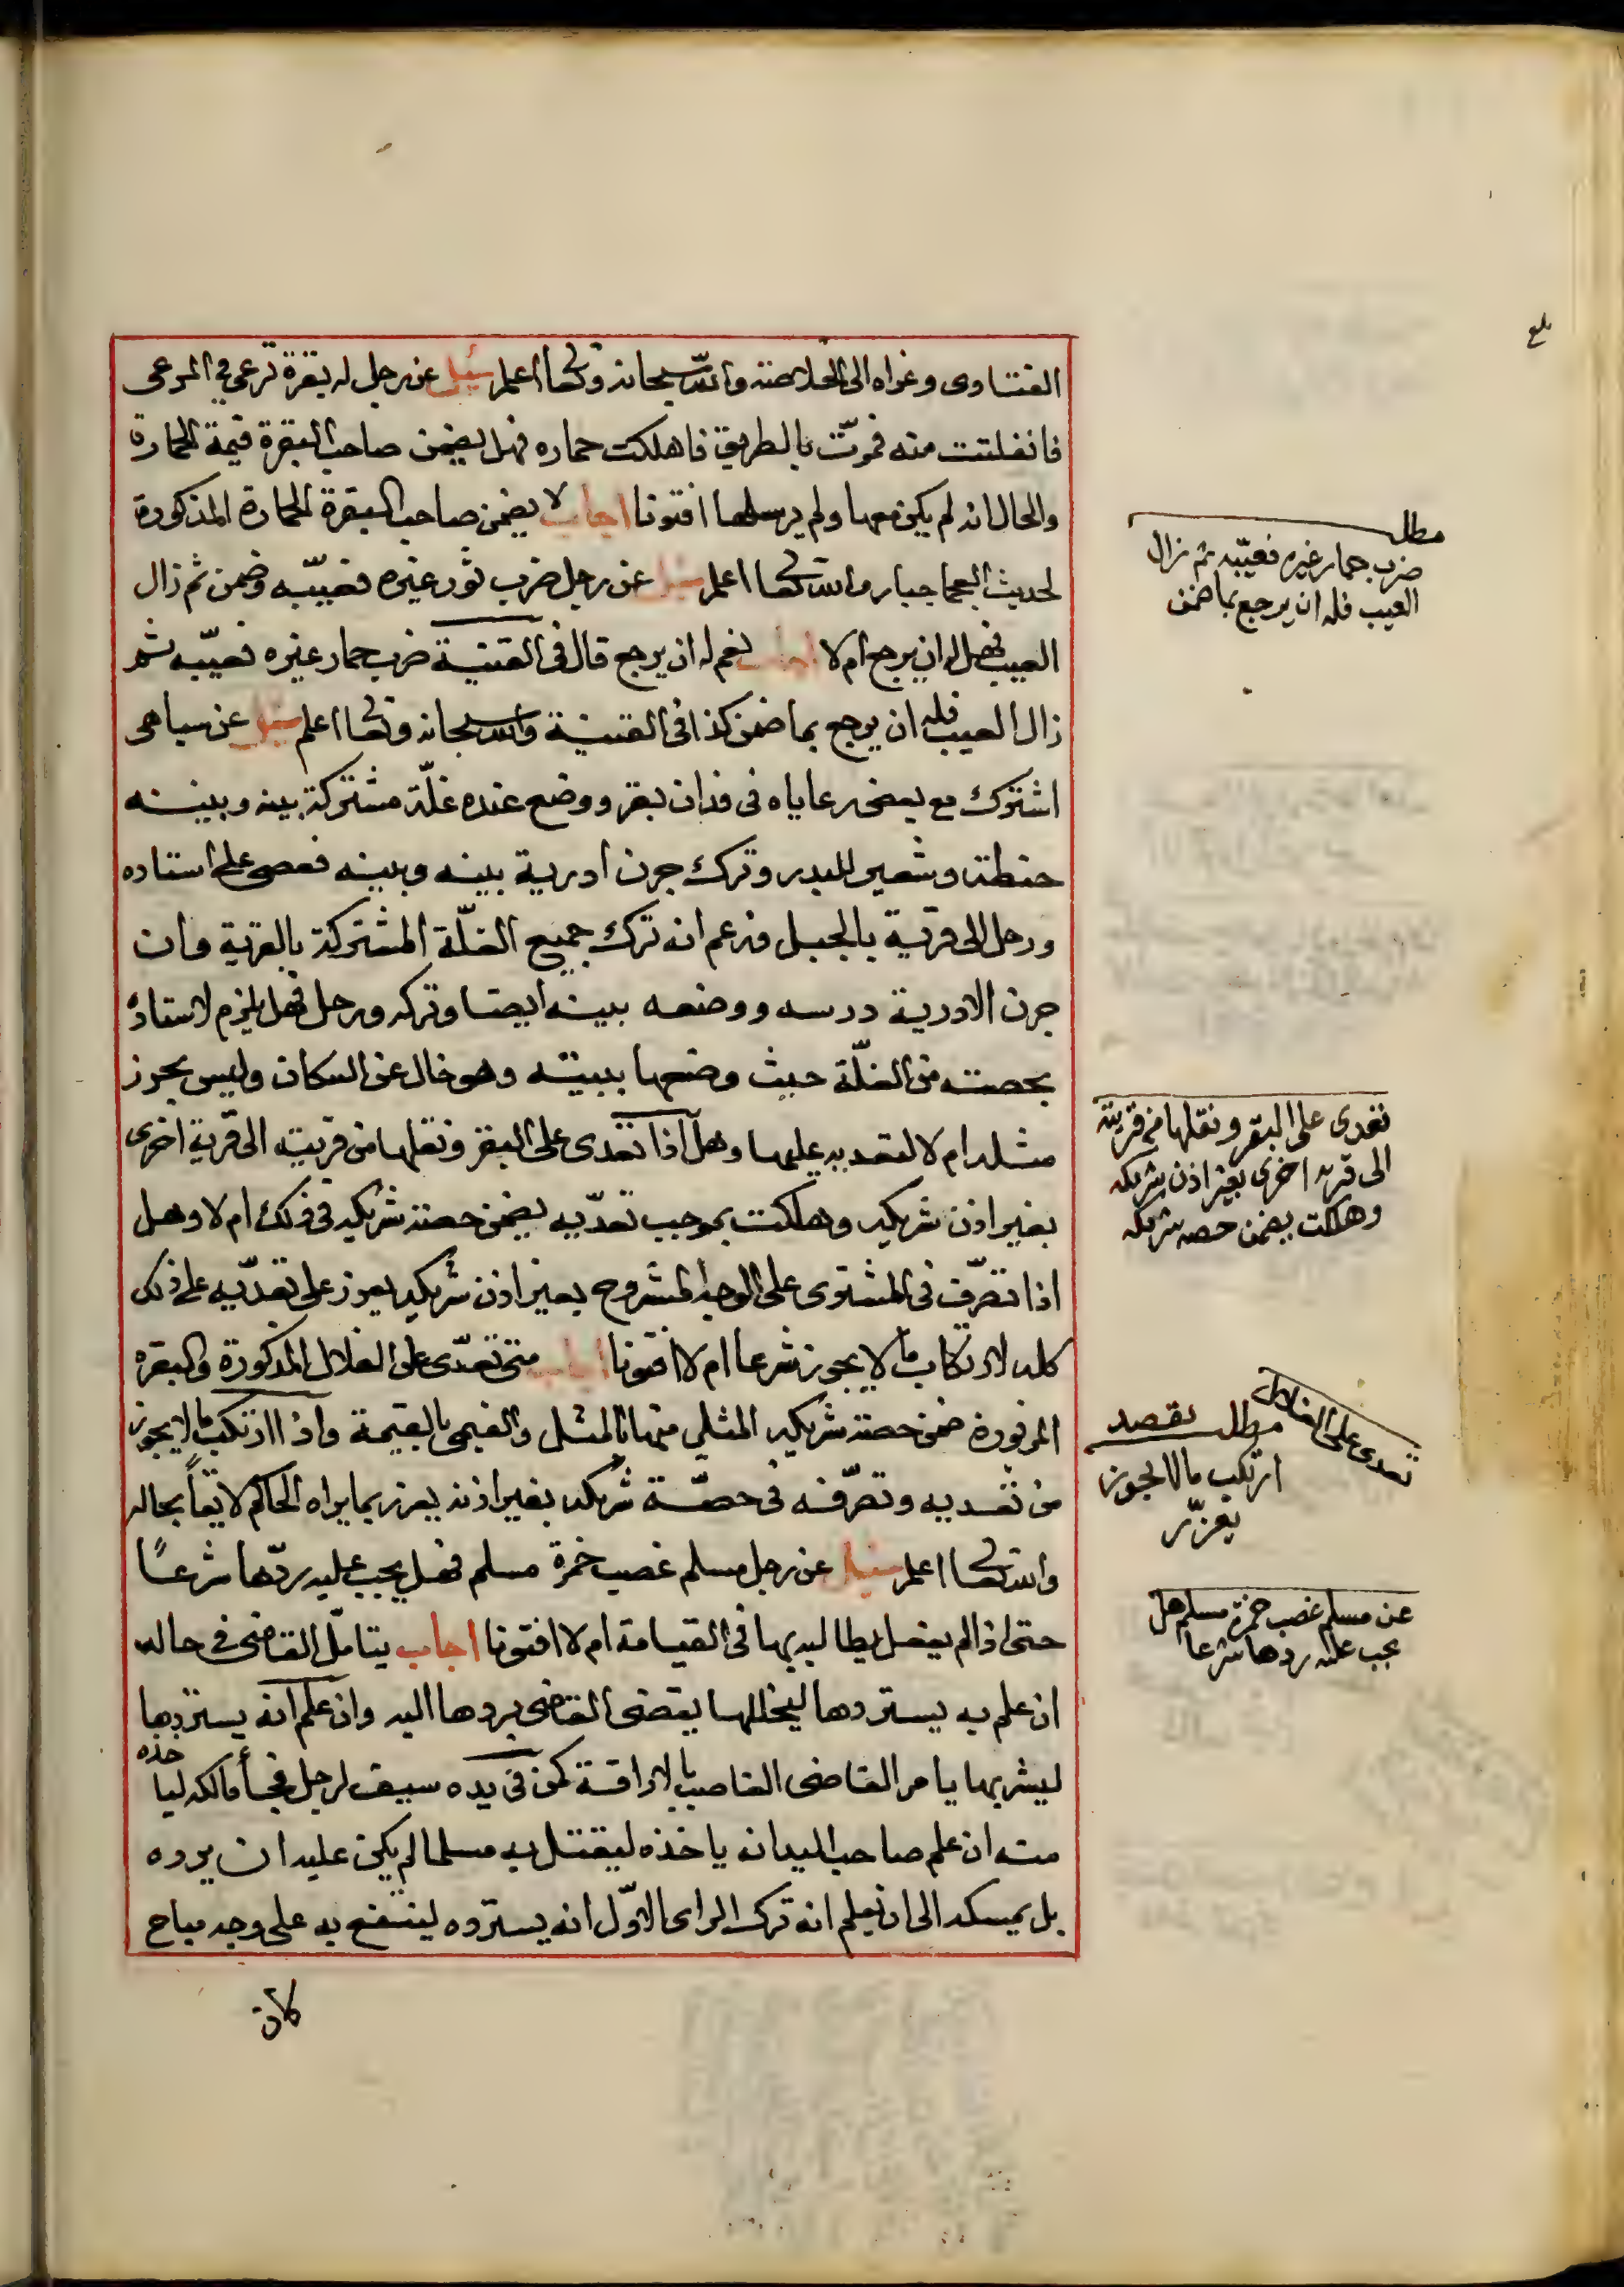 الفتاوى وعزاه الى الخلاصة والله سبحانه وتعالى اعلم سئيل عن رجل له بقرة ترعى في المرعى
فانفلتت منه فمرّت بالطريق فاهلكت حماره فهل يضمن صاحب البقرة قيمة الحمارة
والحال انه لم يكن معها ولم يرسلها افتونا اجاب لا يضمن صاحب البقرة الحمارة المذكورة
لحديث العجما جبار والله تعالى اعلم سئيل عن رجل ضرب ثور غيره فعيّبه وضمن ثم زال
العيب فهل له ان يرجع ام لا اجاب نعم له ان يرجع قال في القنية ضرب حمار غيره فعيّبه ثم
زال العيب فله ان يرجع بما ضمن كذا في القنية والله سبحانه وتعالى اعلم سئيل عن سباهى
اشترك مع بعض رعاياه في فدان بقر ووضع عنده غلّة مشتركة بينه وبينه
حنطة وشعير للبدر وترك جرن ادرية بينه وبينه فعصى على استاده
ورحل الى قرية بالجبل وزعم انه ترك جميع الغلّة المشتركة بالقرية وان
جرن الادرية درسه ووضعه ببيته ايضا وتركه ورحل فهل يلزم لاستاده
بحصته من الغلّة حيث وضعها ببيته وهو خال عن السكان وليس بحرز
مثله ام لا لتعديه عليها وهل اذا تعدى على البقر ونقلها من قريته الى قرية اخرى
بغير اذن شريكه وهلكت بموجب تعدّيه يضمن حصة شريكه في ذلك ام لا وهل
اذا تصرّف في المشترى على الوجه المشروح بغير اذن شريكه يعزر على تعدّيه على ذلك
كله لارتكاب ما لا يجوز شرعا ام لا افتونا اجاب متى تعدّى على الغلال المذكورة والبقره
المزبورة ضمن حصة شريكه المثلي منها بالمثل والقيمى بالقيمة واذا ارتكب ما لا يجوز
من تعديه وتصرّفه في حصّة شريكه بغير اذنه يعزر بما يراه الحاكم لايقاً بحاله
والله تعالى اعلم سئيل عن رجل مسلم غصب خمرة مسلم فهل يجب عليه ردّها شرعًا
حتى اذا لم يفعل يطالبه بها في القيامة ام لا افتونا اجاب يتامّل القاضى في حاله
ان علم به يستردها ليخللها يقضى القاضى بردها اليه وان علم انه يستردها
ليشربها يامر القاضى الغاصب بالاراقة كمن في يده سيف لرجل فجأ مالكه لياخذه
منه ان علم صاحب اليد انه ياخذه ليقتل به مسلما لم يكن عليه ان يرده
بل يمسكه الى ان يعلم انه ترك الراى الاوّل انه يسترده لينتفع به على وجه مباح
كان
بلغ
مطلب
ضرب حمار غيره فعيّبه ثم زال
العيب فله ان يرجع بما ضمن
تعدى على البقر ونقلها من قريته
الى قريه اخرى بغير اذن شريكه
وهلكت يضمن حصه شريكه
تعدى على الغلال
مطلب
ارتكب ما لا يجوز
يعزّر
عن مسلم غصب خمرة مسلم هل
يجب عليه ردها شرعا